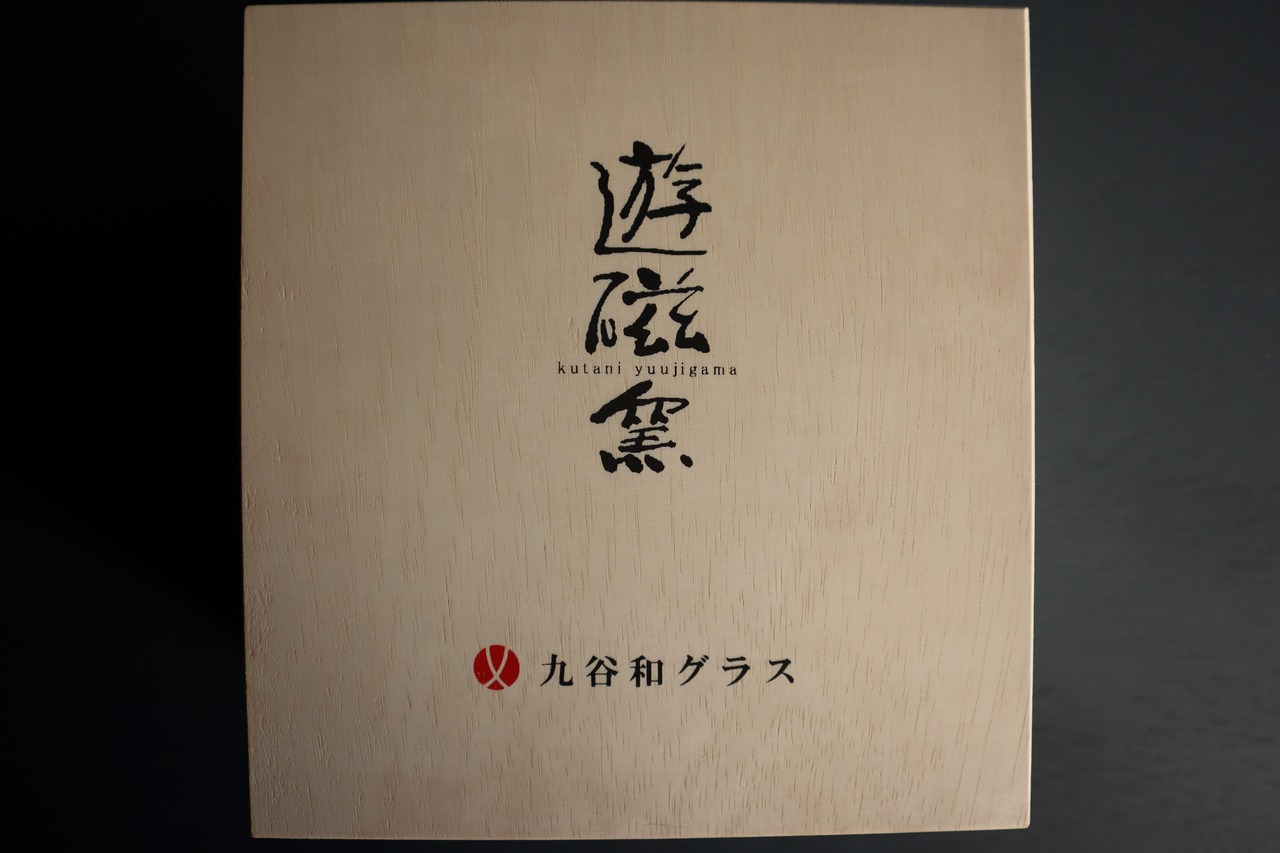 遊磁窯
kutani yuujigama
九谷和グラス